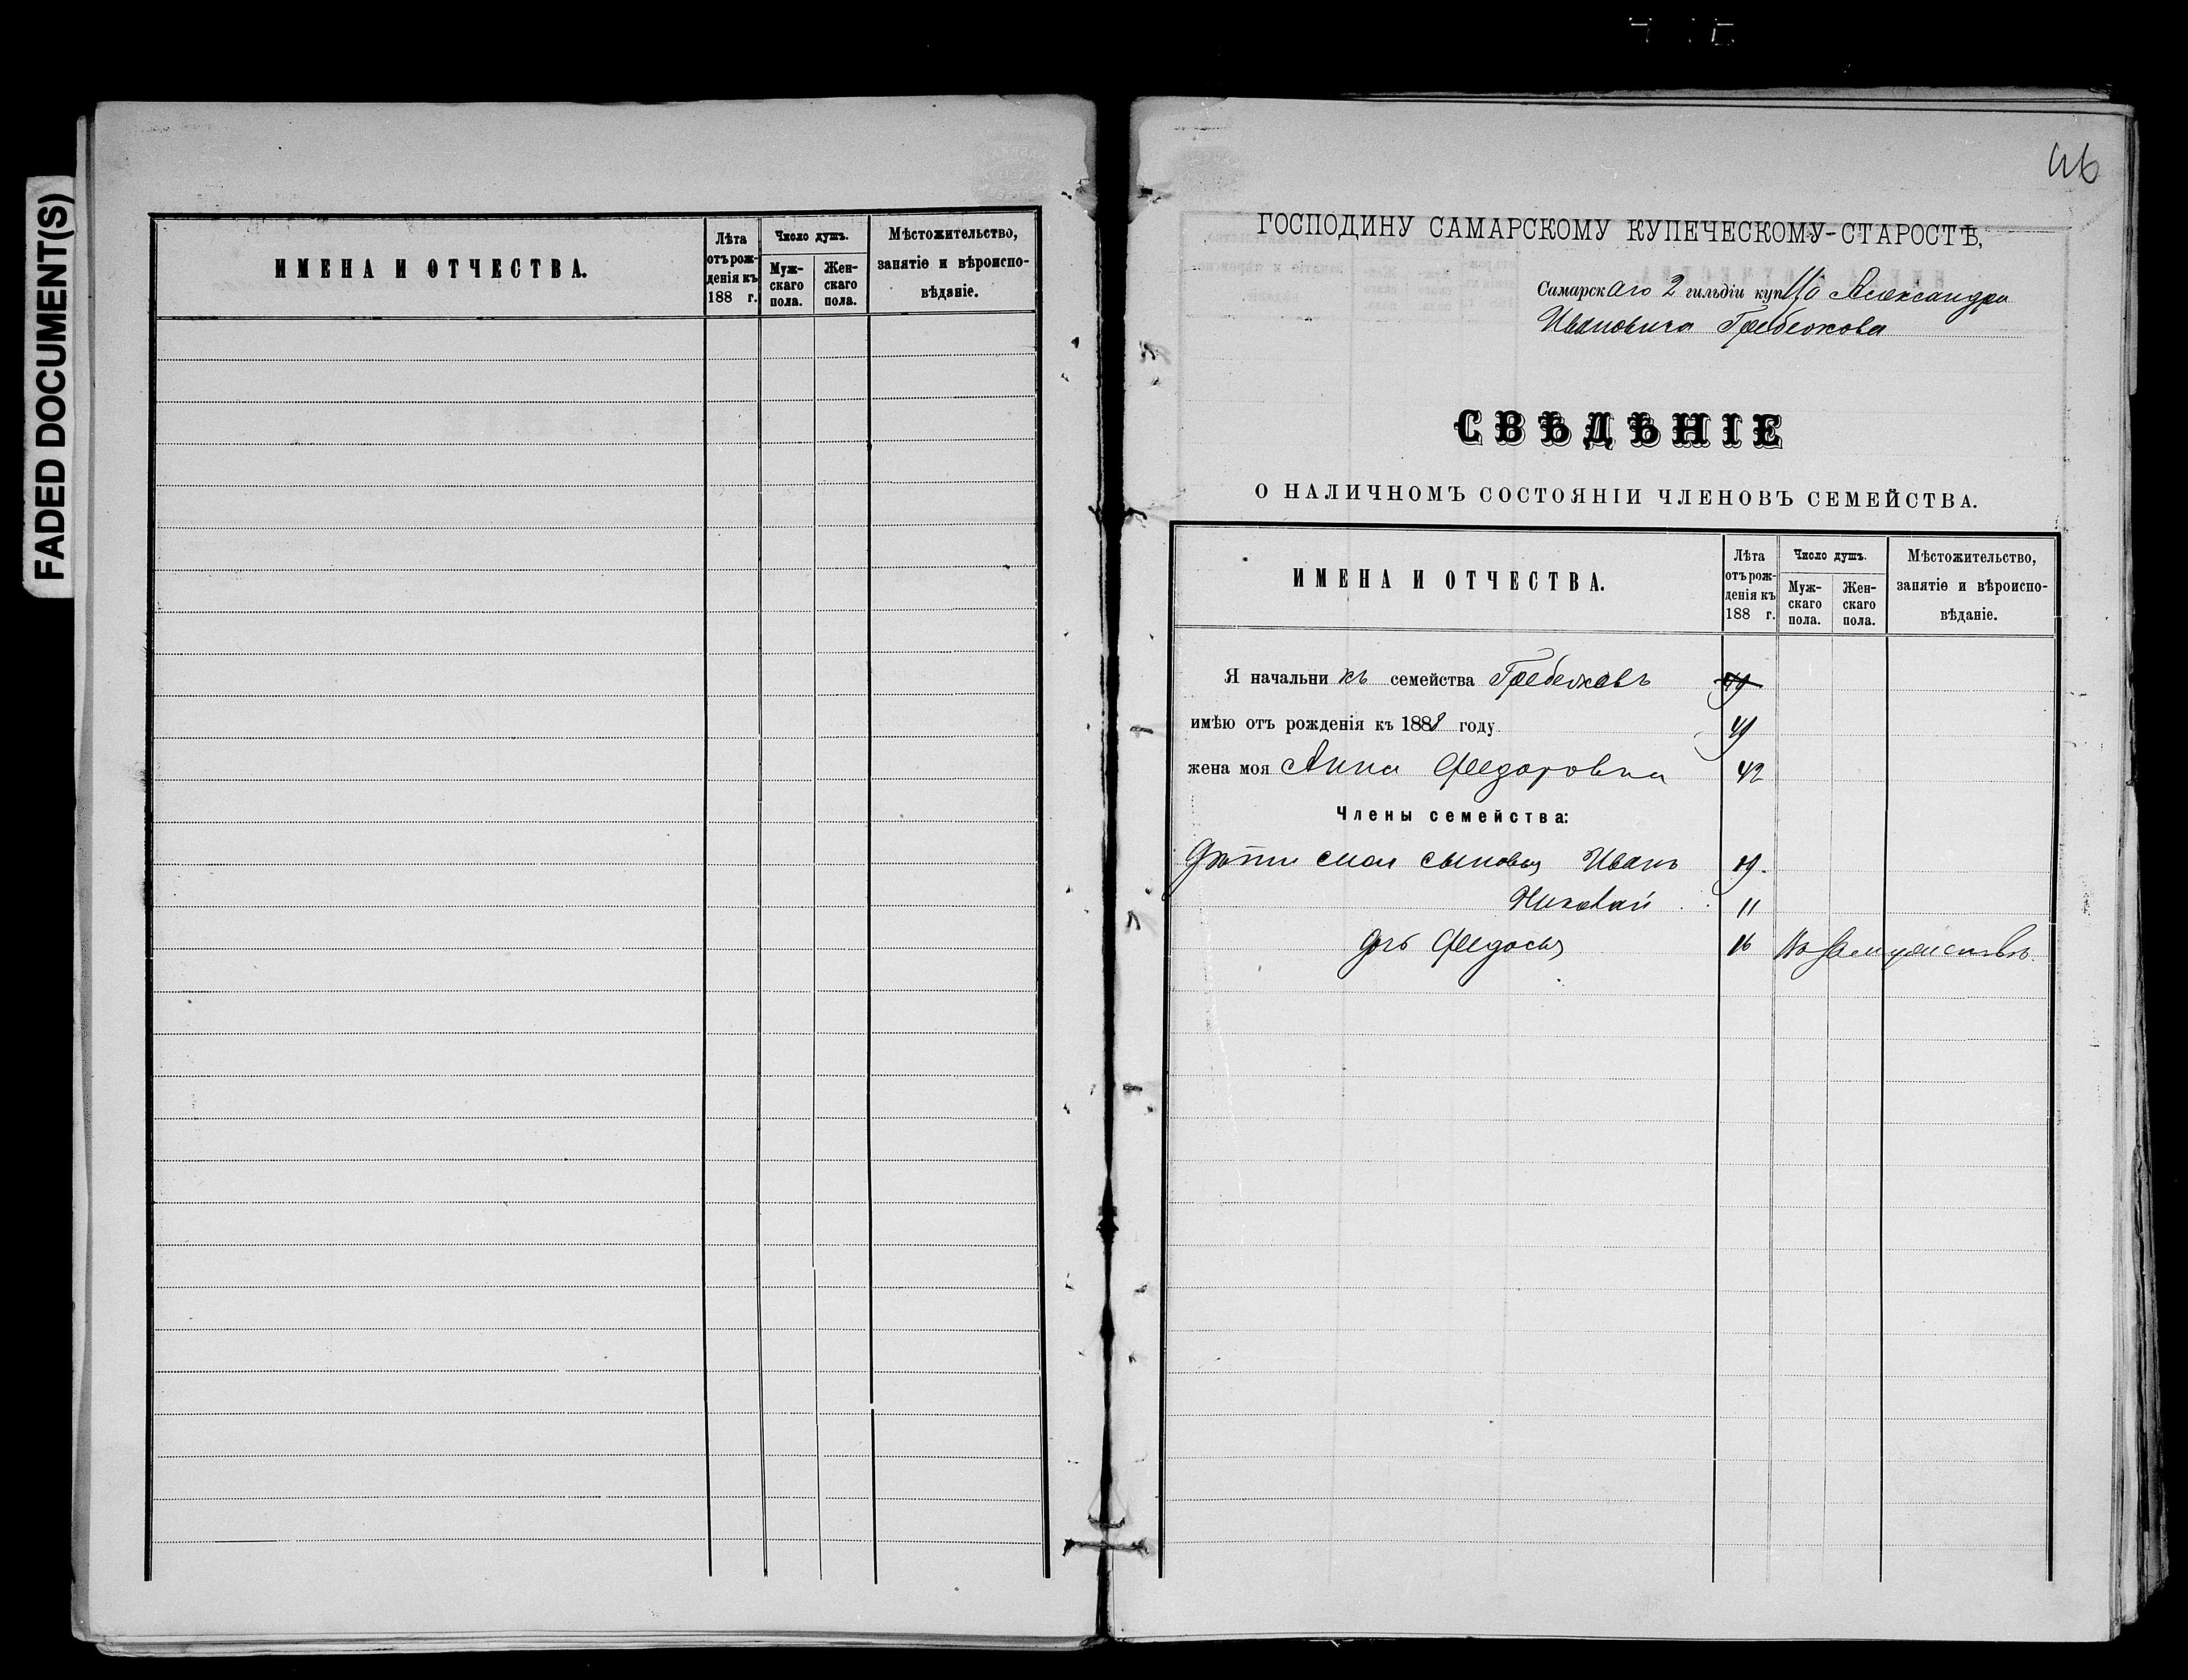 FADED DOCUMENT(S)
ИМЕНА И ОТЧЕСТВА.
Лѣта
отъ рож-
денія къ
188 г.
Число душъ.
Муж-
скаго
пола.
Жен-
скаго
пола.
Мѣстожительство,
занятіе и вѣроиспо-
вѣданіе.
46
ГОСПОДИНУ САМАРСКОМУ КУПЕЧЕСКОМУ-СТАРОСТѢ,
Самарскаго 2 гильдіи купца Александра
Ивановича Гребежкова
СВѢДѢНІЕ
О НАЛИЧНОМЪ СОСТОЯНІИ ЧЛЕНОВЪ СЕМЕЙСТВА.
ИМЕНА И ОТЧЕСТВА.
Лѣта
отъ рож-
денія къ
188 г.
Число душъ.
Муж-
скаго
пола.
Жен-
скаго
пола.
Мѣстожительство,
занятіе и вѣроиспо-
вѣданіе.
Я начальникъ семейства Гребежковъ
имѣю отъ рожденія къ 1888 году 49
жена моя Анна Федоровна 42
Члены семейства:
Дѣти мои сыновья Иванъ 19
Николай 11
дочь Федосья 16 Въ замужествѣ